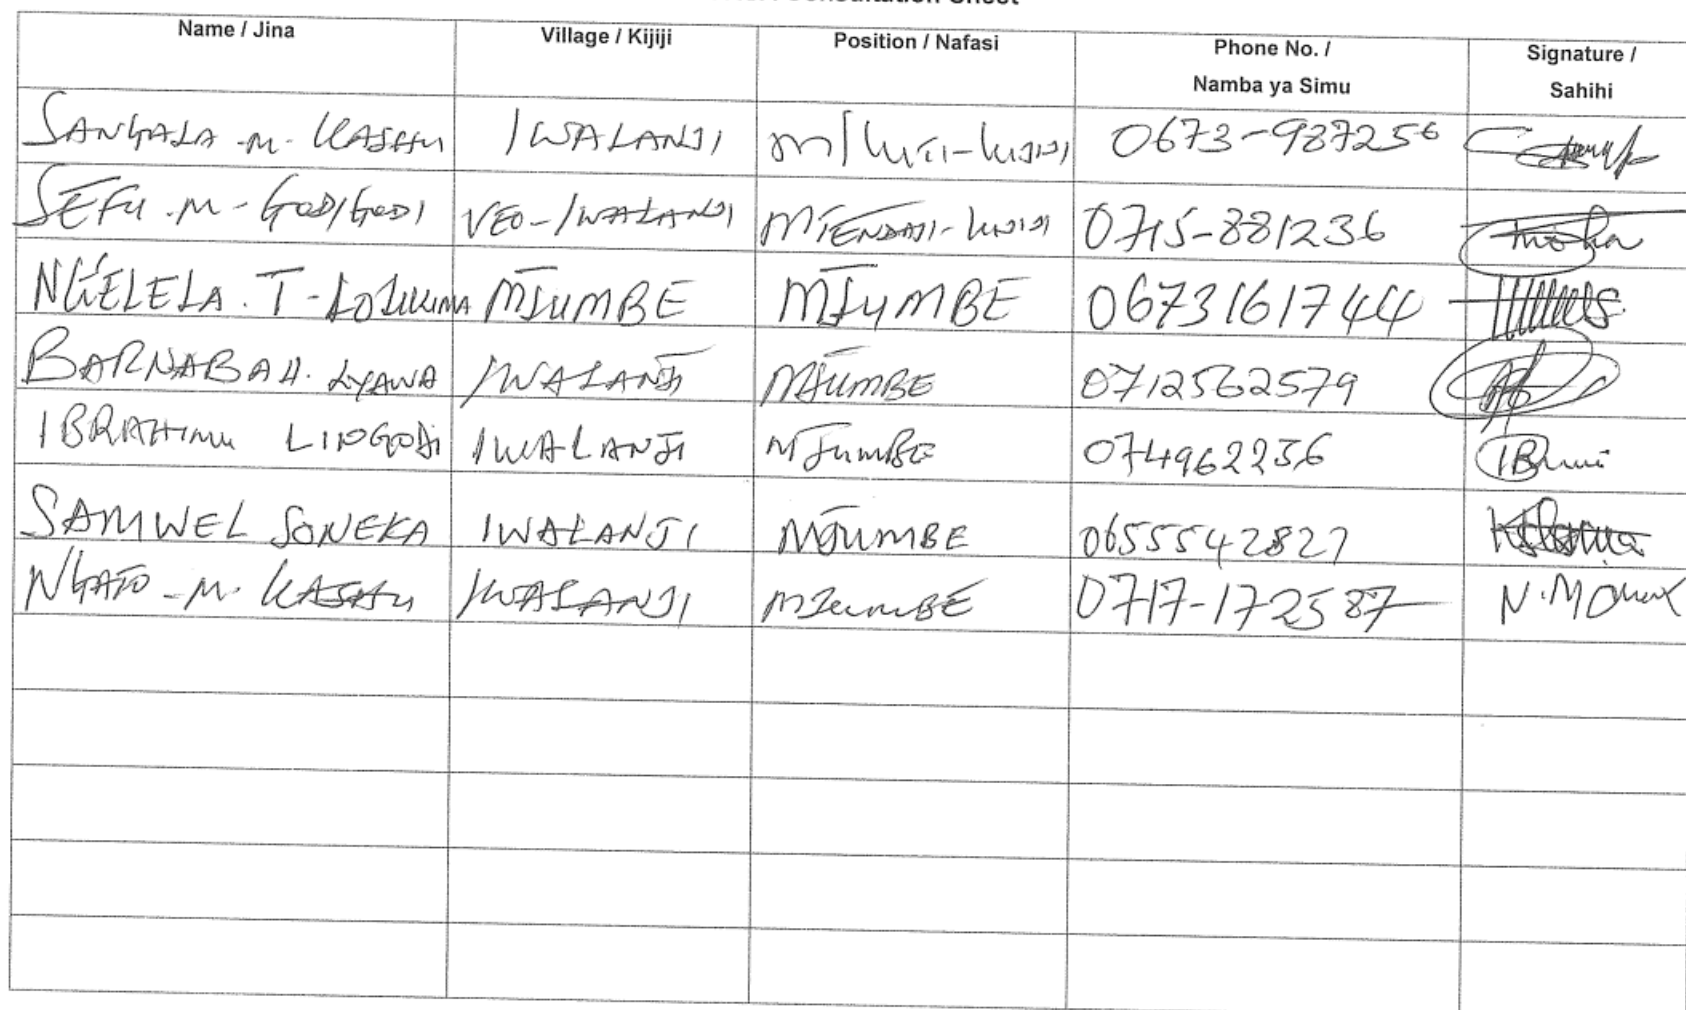 Consultation Sheet
Name / Jina Village / Kijiji Position / Nafasi Phone No. / Signature /
Namba ya Simu Sahihi
SANGALA -M- KASHU IWALANJI M/kiti-kijiji 0673-987256
SEFU -M- GODIGODI VEO-IWALANJI MTENDAJI-kijiji 0715-881236
NGELELA. T- MJUMBE MJUMBE 0673161744
BARNABA H. LYAWA IWALANJI MJUMBE 0712562579
IBRAHIMU IWALANJI MJUMBE 074962236
SAMWEL SONEKA IWALANJI MJUMBE 0655542827
NGATO -M- KASHU IWALANJI MJUMBE 0717-172587